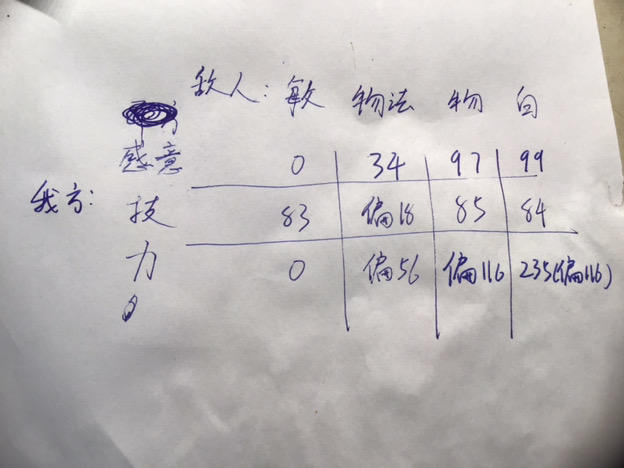 敌人: 敏 物法 物 白
感意 0 34 97 99
我方: 技 83 偏18 85 84
力 0 偏56 偏116 235(偏116)